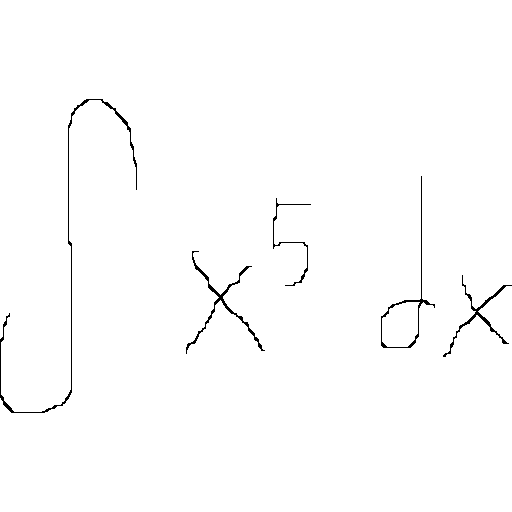 ∫ x⁵ dx